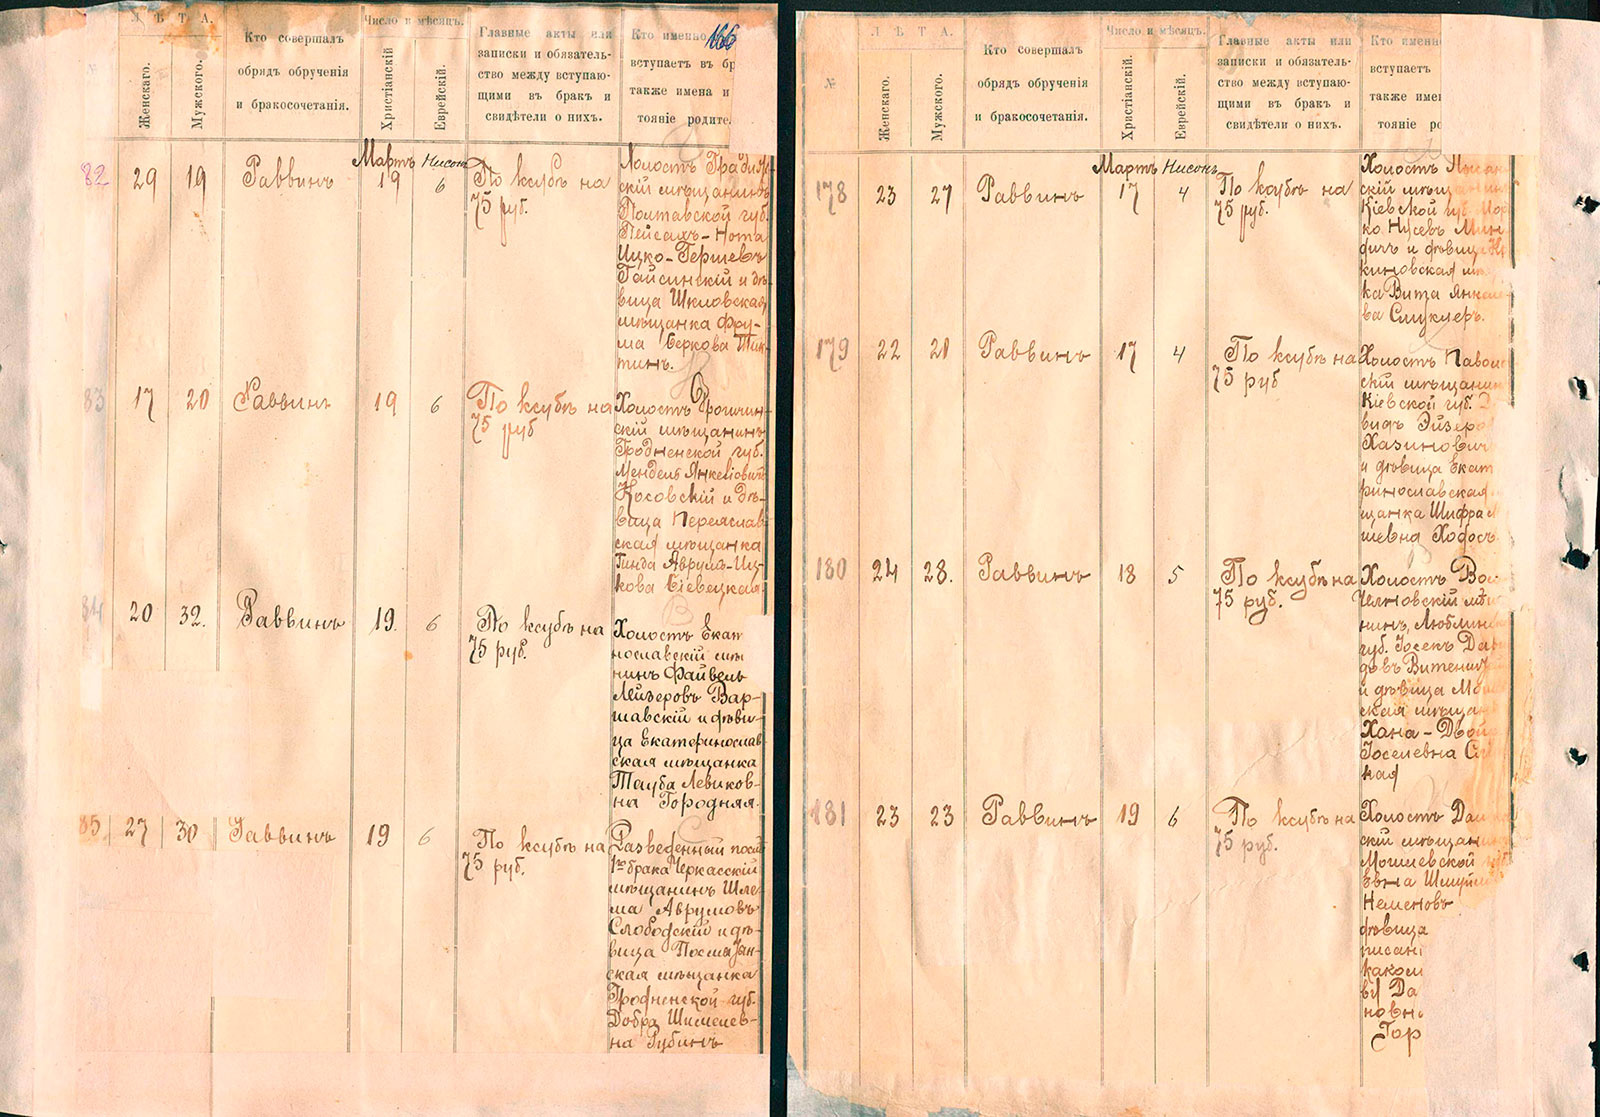 166
№
ЛѢТА.
Женскаго.
Мужского.
Кто совершалъ
обрядъ обрученія
и бракосочетанія.
Число и мѣсяцъ.
Христіанскій
Еврейскій.
Главные акты или
записки и обязатель-
ство между вступаю-
щими въ бракъ и
свидѣтели о нихъ.
Кто именно
вступаетъ въ бр
также имена и
тояніе родите.
Мартъ Нисонъ
82 29 19 Раввинъ 19 6
По ксубѣ на
75 руб.
Холостъ Градиж-
скій мѣщанинъ
Полтавской губ.
Пейсахъ-Нота
Ицко-Гершевъ
Гайсинскій и дѣ-
вица Шкловская
мѣщанка Фру-
ма Беркова
тинъ.
83 17 20 Раввинъ 19 6
По ксубѣ на
75 руб
Холостъ
скій мѣщанинъ
Гродненской губ.
Мендель Янкелович
Косовскій и дѣ-
вица Переяслав
ская мѣщанка
Гинда Аврумъ-Иц-
кова
84 20 32. Раввинъ 19. 6
По ксубѣ на
75 руб.
Холостъ Екат
нославскій мѣщ
нинъ Файвель
Лейзеровъ Вар-
шавскій и дѣви-
ца Екатеринослав
ская мѣщанка
Тауба Левиков-
на Городняя.
85. 27 30 Раввинъ 19 6
По ксубѣ на
75 руб.
Разведенный послѣ
1го брака Черкасскій
мѣщанинъ Шле-
ма Аврумовъ
Слободскій и дѣ-
вица
ская мѣщанка
Гродненской губ.
Добра Шимелев-
на Рубинъ
№
ЛѢТА.
Женскаго.
Мужского.
Кто совершалъ
обрядъ обрученія
и бракосочетанія.
Число и мѣсяцъ.
Христіанскій.
Еврейскій.
Главные акты или
записки и обязатель-
ство между вступаю-
щими въ бракъ и
свидѣтели о нихъ.
Кто именн
вступаетъ
также имен
тояніе ро
Мартъ Нисонъ
178 23 27 Раввинъ 17 4
По ксубѣ на
75 руб.
Холостъ Лысян
скій мѣщанин
Кіевской губ. Мор
ко Нусевъ
и дѣвица
киновская мѣ
ка Вита Янкел
ва Смукл­еръ.
179 22 21 Раввинъ 17 4
По ксубѣ на
75 руб
Холостъ Паволо
скій мѣщанин
Кіевской губ. Д
видъ Эйзеро
Хазинович
и дѣвица Екат
ринославская
щанка Шифра М
шевна Ходосъ.
180 24 28. Раввинъ 18 5
По ксубѣ на
75 руб.
Холостъ Во
мѣщ
нинъ, Люблин
губ. Іосекъ Дав
довъ
и дѣвица
ская мѣщан
Хана-Двой
Іоселевна
кая
181 23 23 Раввинъ 19 6
По ксубѣ на
75 руб.
Холостъ
скій мѣщани
Могилевской губ
Шмуй
Неменовъ
дѣвица
писан
какой
ва Да
новн
Гор